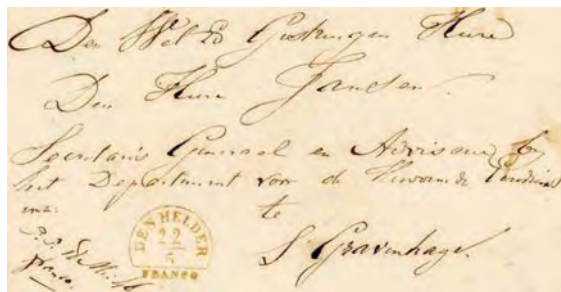 Den Wel Ed Gestrengen Heere
Den Heere Jansen.
Secretaris Generaal en Adviseur by
het Departement voor de Hervormde Eerdienst
te
S'Gravenhage.
DEN HELDER
22
5
FRANCO
Franco.